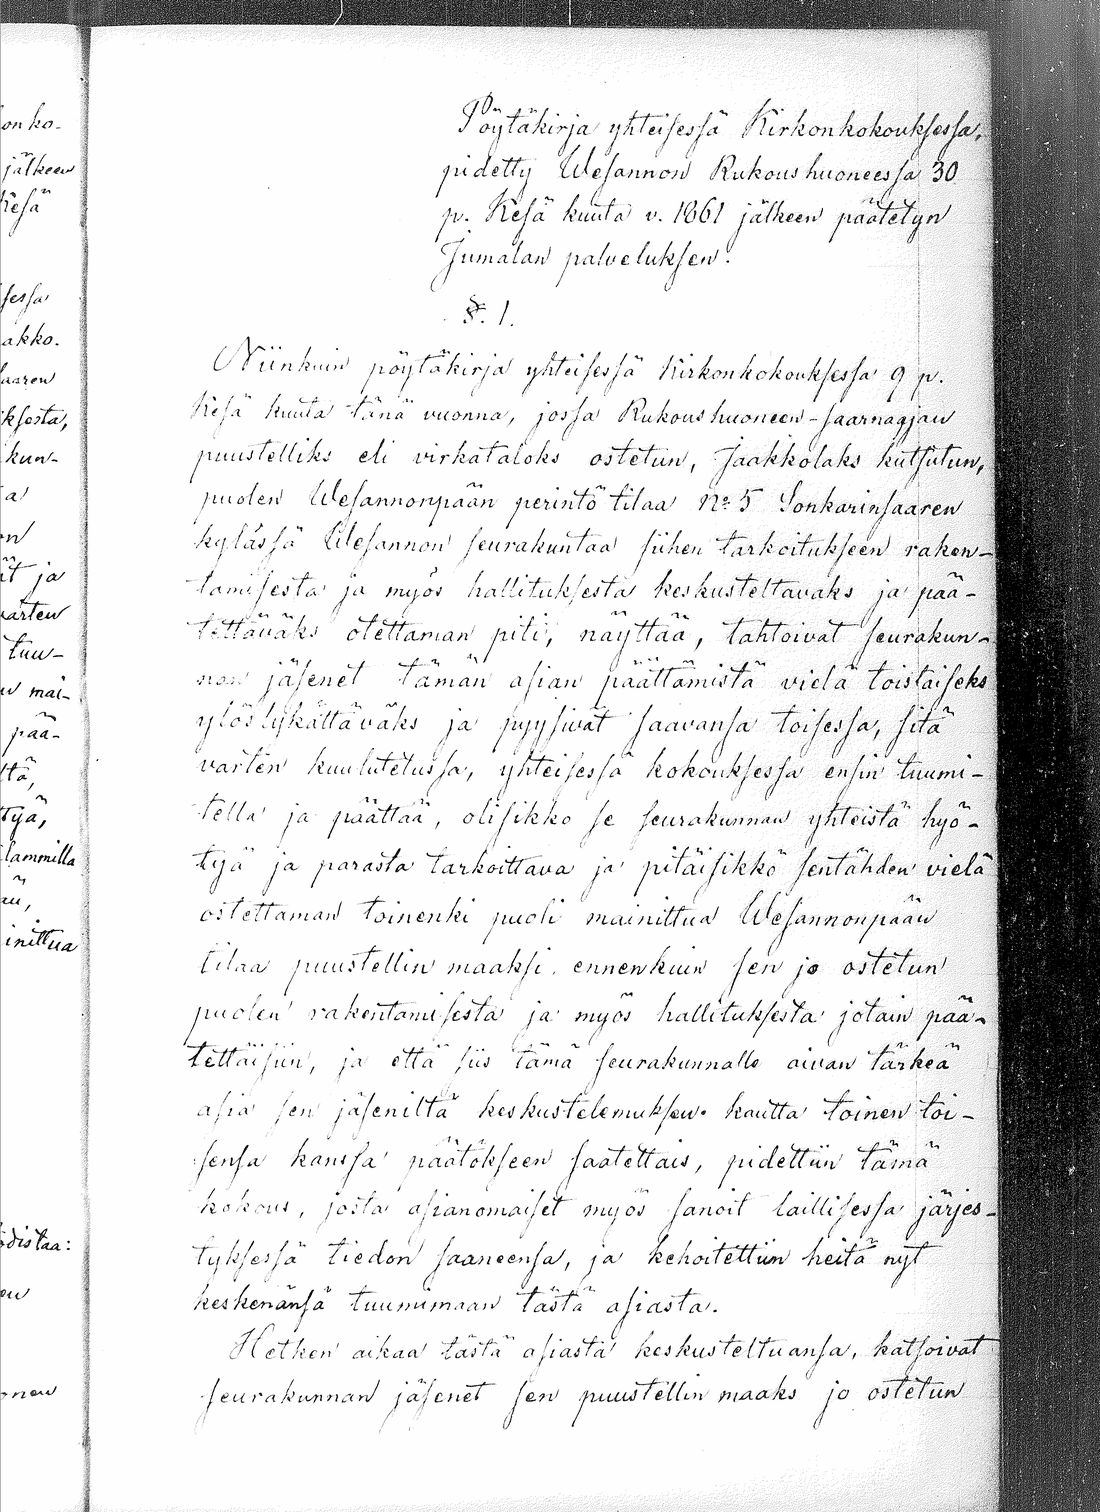 onko-
jälkeen
Kesä
sessa
akko.
saaren
ksesta,
kun-
a
on
ät ja
varten
tuu-
mai-
pää-
ltä,
tyä,
lammilla
inittua
odistaa:
onen
Pöytäkirja yhteisessä Kirkonkokouksessa,
pidetty Wesannon Rukoushuoneessa 30
p. Kesä kuuta v. 1861 jälkeen päätetyn
Jumalan palveluksen.
§. 1.
Niinkuin pöytäkirja yhteisessä Kirkonkokouksessa 9 p.
Kesä kuuta tänä vuonna, jossa Rukoushuoneen-saarnaajan
puustelliks eli virkataloks ostetun, Jaakkolaks kutsutun,
puolen Wesannonpään perintö tilaa No 5 Sonkarinsaaren
kylässä Wesannon seurakuntaa siihen tarkoitukseen raken-
tamisesta ja myös hallituksesta keskusteltavaks ja pää-
tettäväks otettaman piti, näyttää, tahtoivat seurakun-
nan jäsenet tämän asian päättämistä vielä toistaiseks
ylöslykättäväks ja pyysivät saavansa toisessa, sitä
varten kuulutetussa, yhteisessä kokouksessa ensin tuumi-
tella ja päättää, olisikko se seurakunnan yhteistä hyö-
tyä ja parasta tarkoittava ja pitäisikkö sentähden vielä
ostettaman toinenki puoli mainittua Wesannonpään
tilaa puustellin maaksi, ennenkuin sen jo ostetun
puolen rakentamisesta ja myös hallituksesta jotain pää-
tettäisiin, ja että siis tämä seurakunnalle aivan tärkeä
asia sen jäseniltä keskustelemuksen kautta toinen toi-
sensa kanssa päätökseen saatettais, pidettiin tämä
kokous, josta asianomaiset myös sanoit laillisessa järjes-
tyksessä tiedon saaneensa, ja kehoitettiin heitä nyt
keskenänsä tuumimaan tästä asiasta.
Hetken aikaa tästä asiasta keskusteltuansa, katsoivat
seurakunnan jäsenet sen puustellin maaks jo ostetun